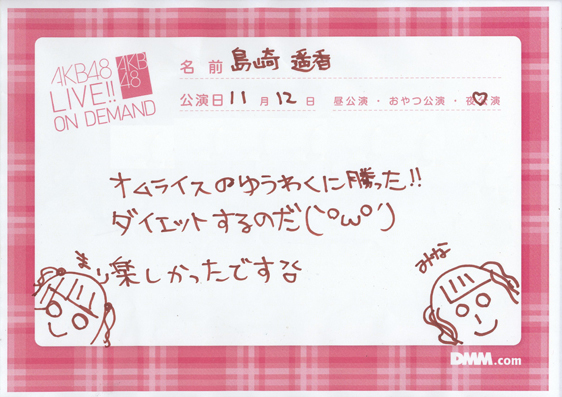 AKB48
LIVE!!
ON DEMAND
AKB
48
名 前 島崎 遥香
公演日 11 月 12 日 昼公演・おやつ公演・夜公演
オムライスのゆうわくに勝った!!
ダイエットするのだ(`°ω°´)
まり
楽しかったです
みな
DMM.com